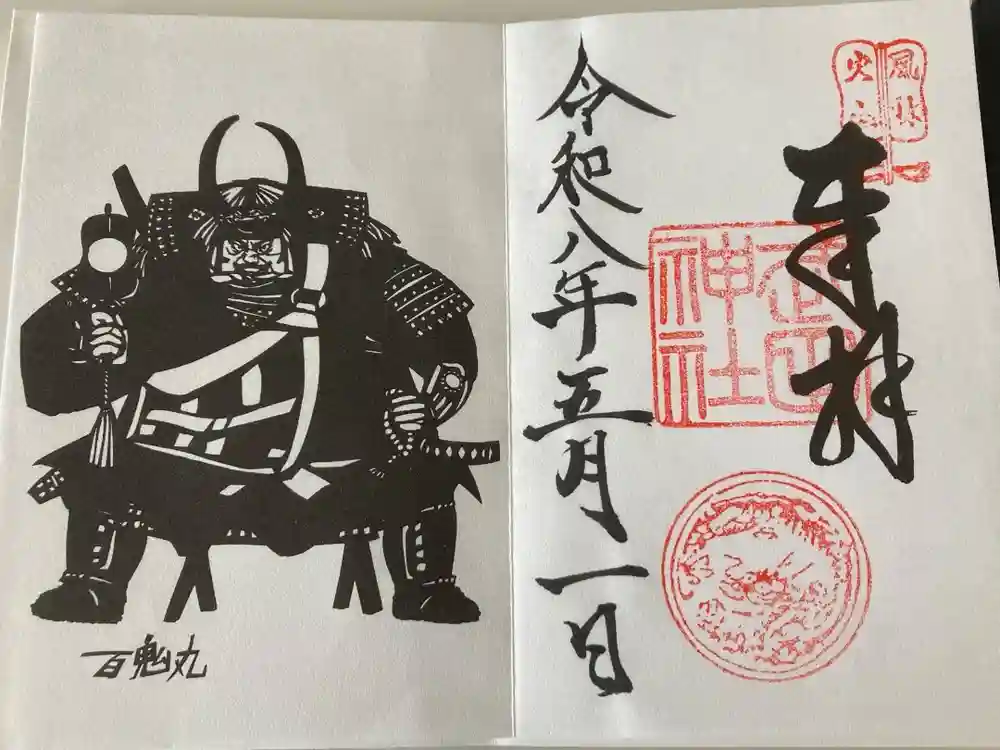 風林
火山
奉拝
武田
神社
令和八年五月一日
百鬼丸